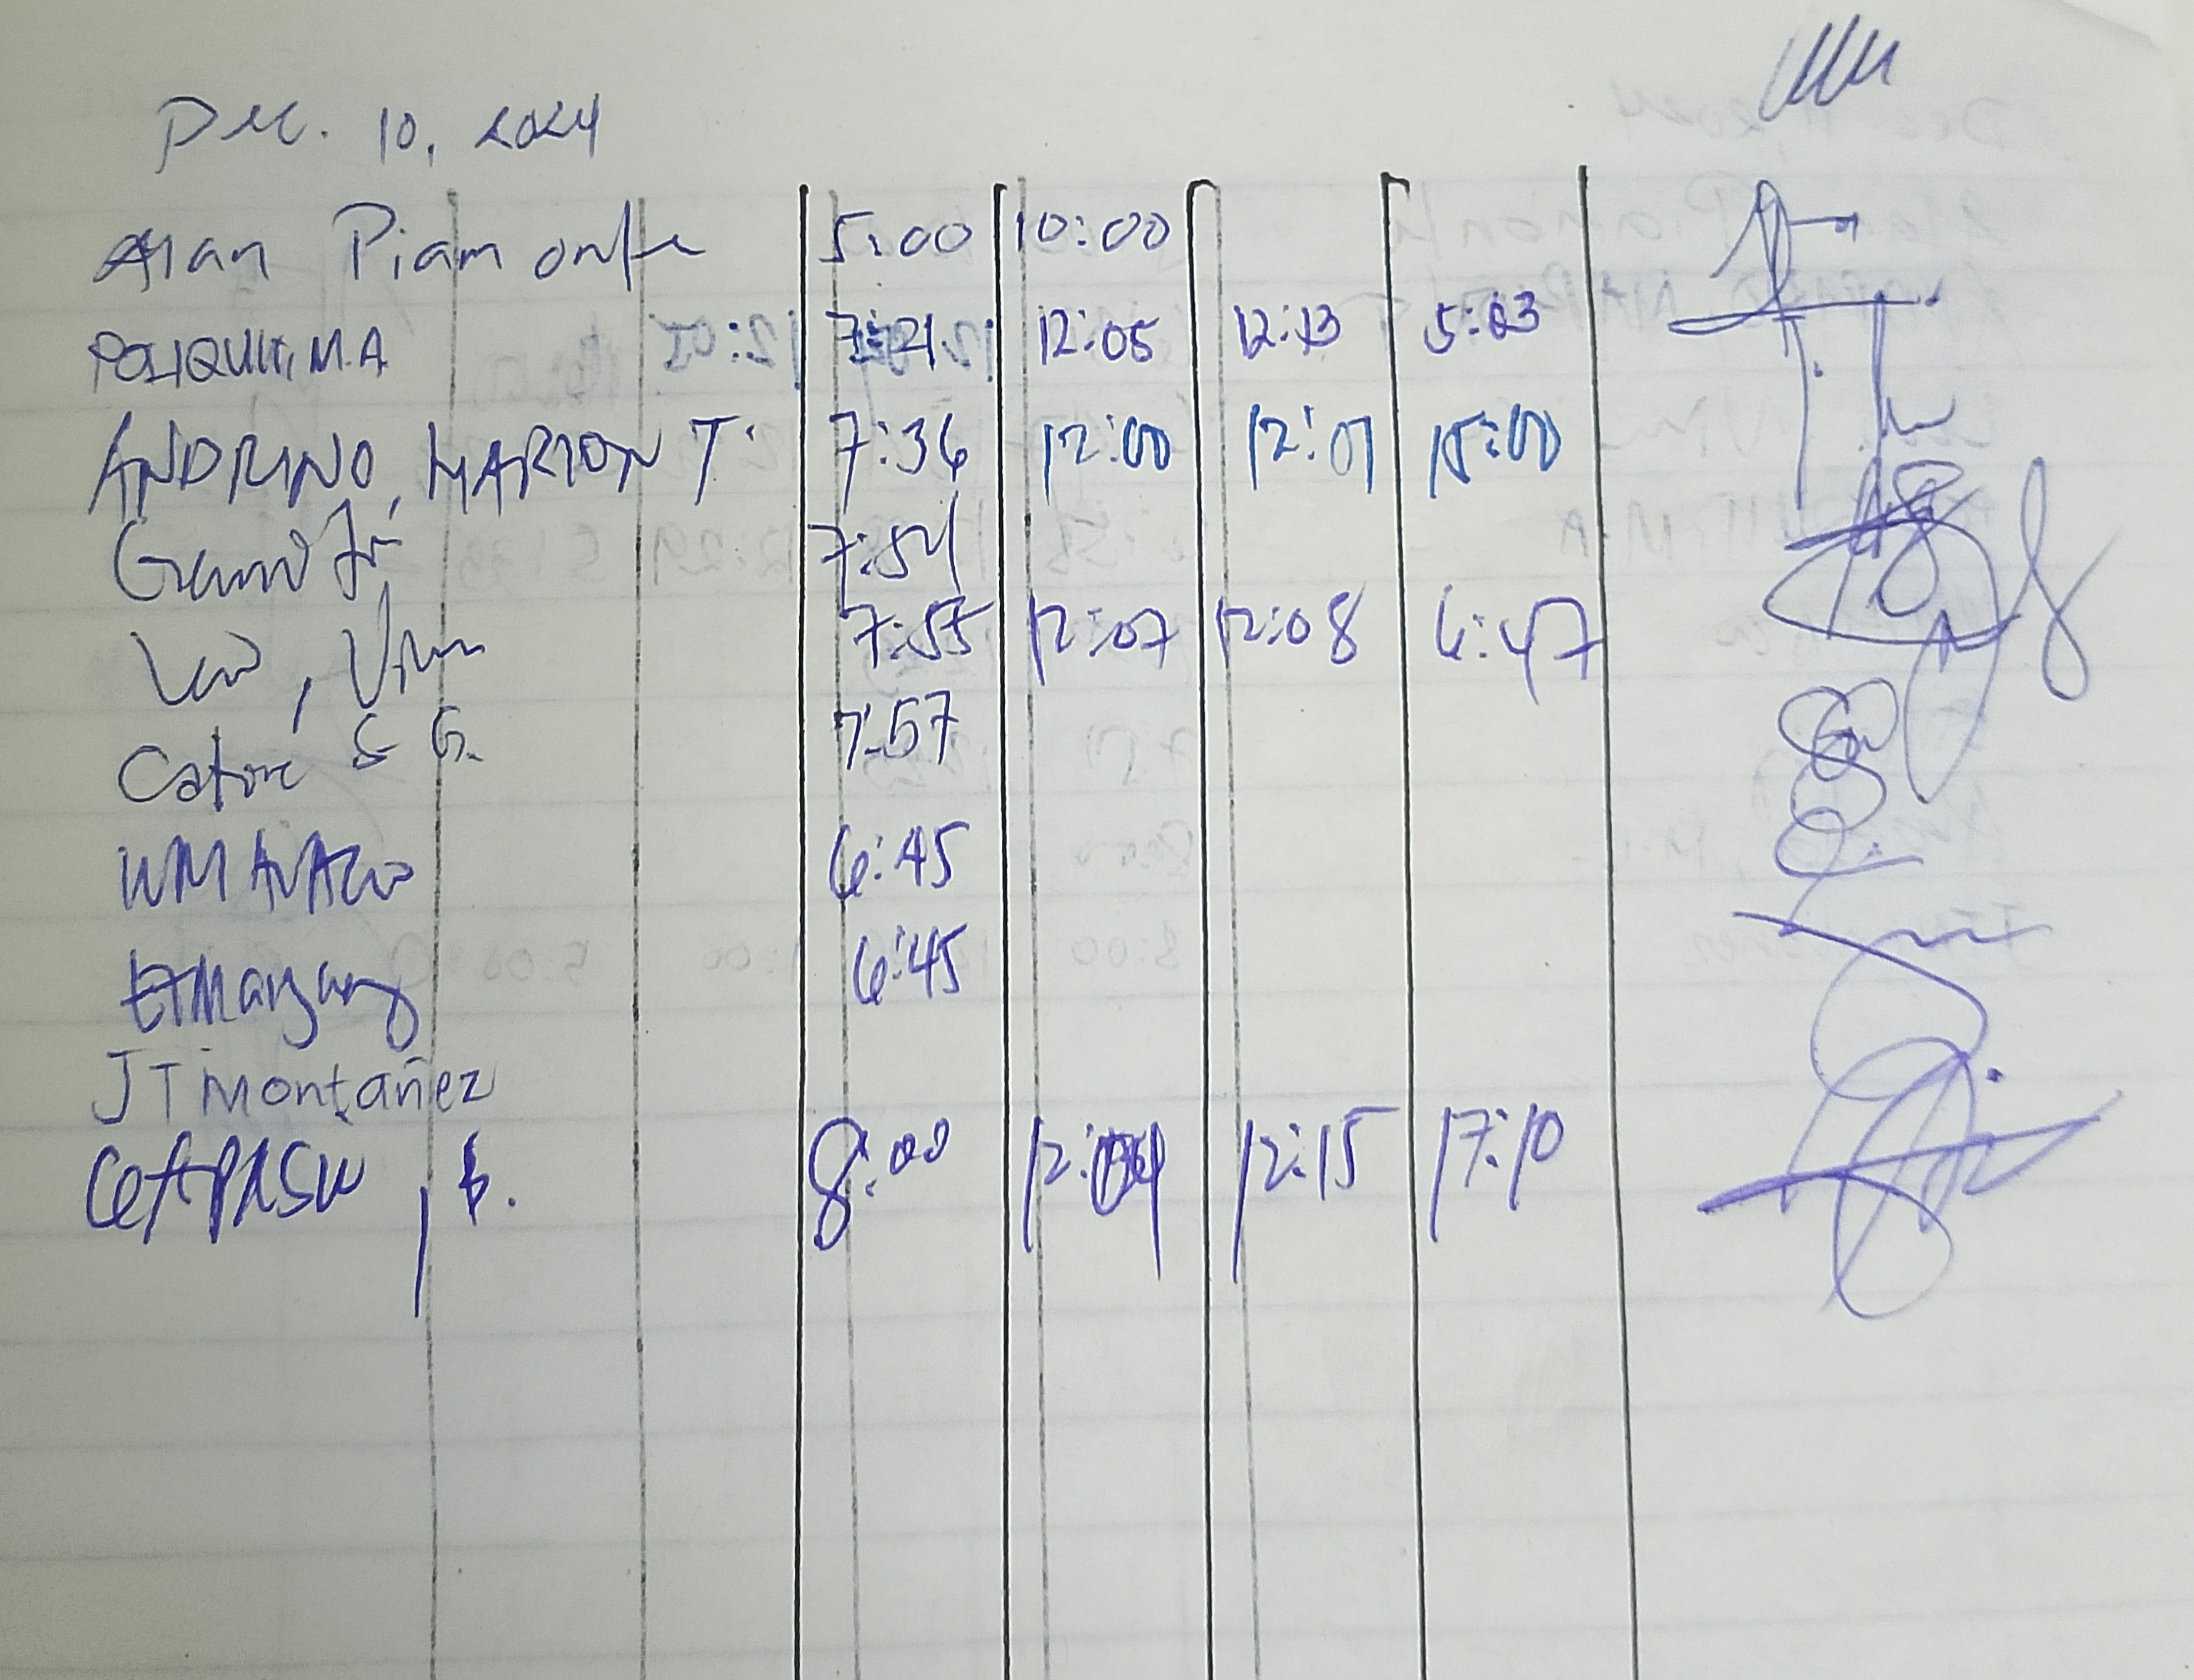 Dec. 10, 2024
Alan Piamonte 5:00 10:00
POLIQUIT, M.A 7:21 12:05 12:13 5:03
ANDRINO, MARION T. 7:36 12:00 12:01 15:00
7:54
7:55 12:07 12:08 6:47
S G. 7:57
WM 6:45
6:45
JT Montañez
8:00 12:04 12:15 17:10